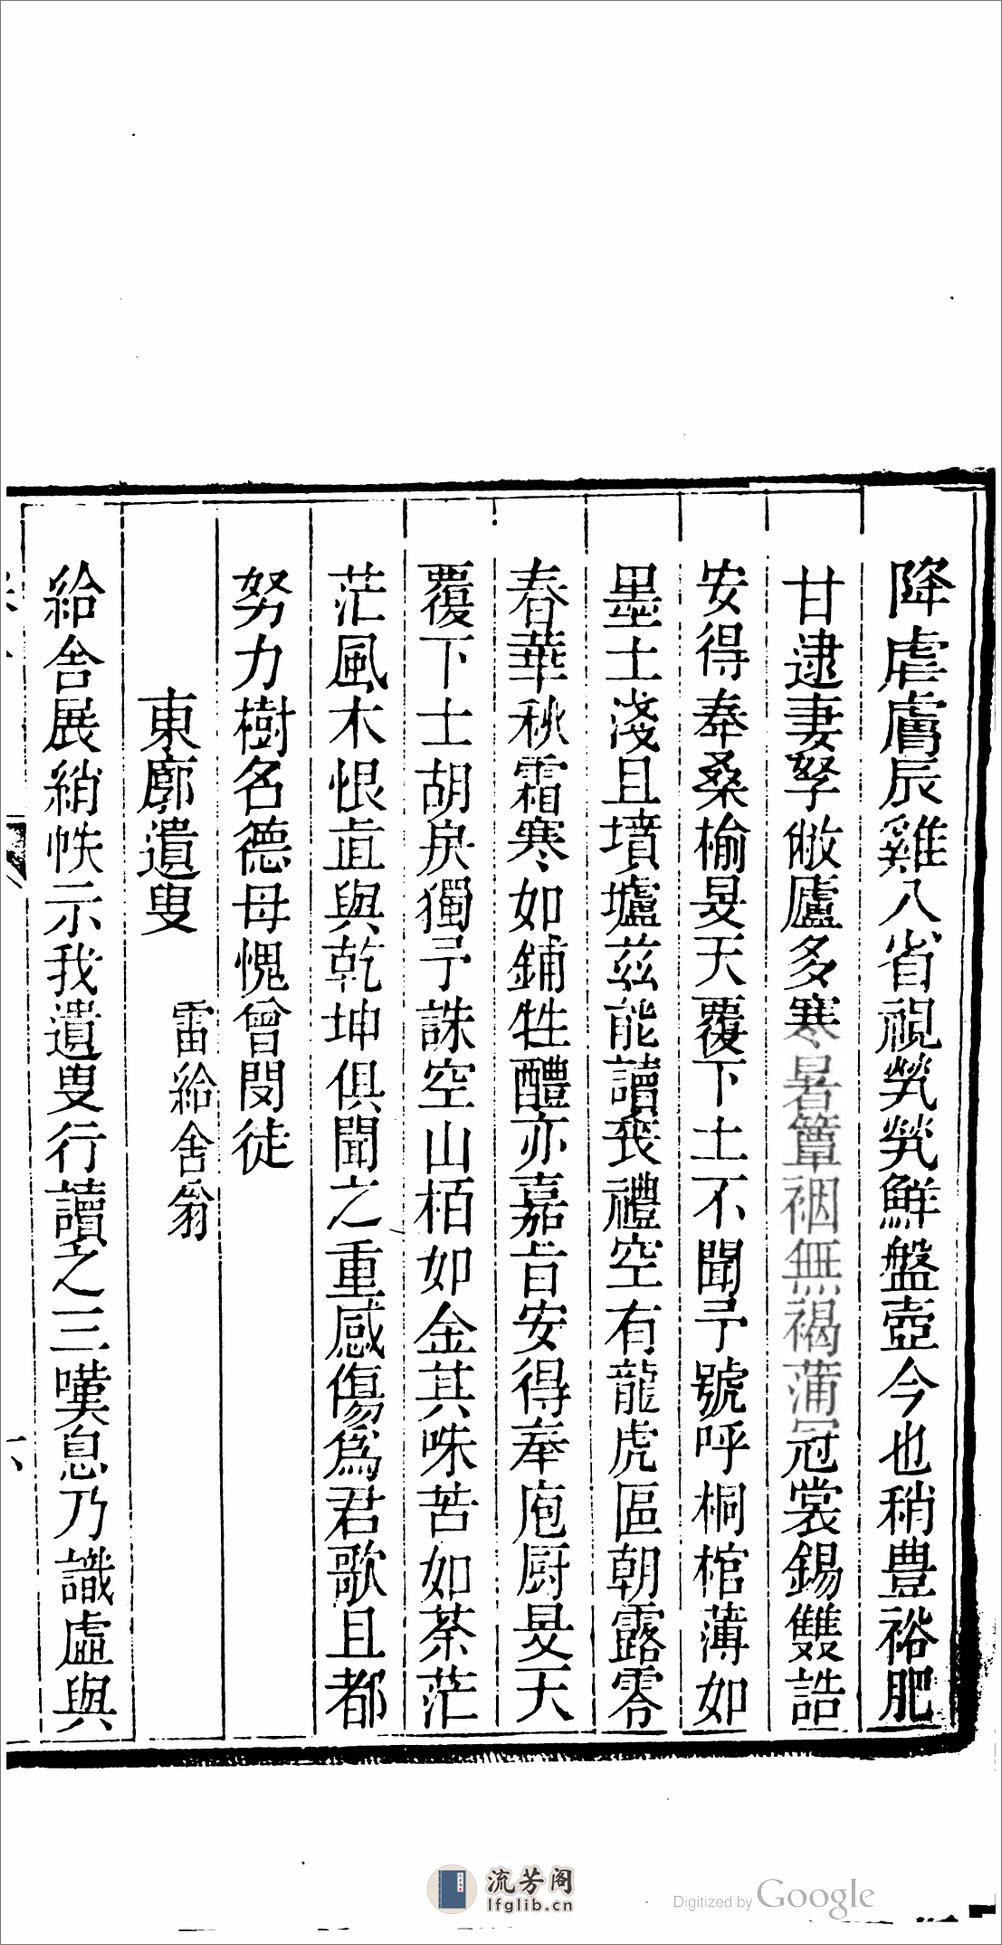 降虐膚辰雞入省視煢煢鮮盤壺今也稍豊裕肥
甘逮妻孥敝廬多寒暑簟裀無褐蒲冠裳錫雙誥
安得奉桑榆旻天覆下土不聞予號呼桐棺薄如
墨土淺且墳壚茲能讀喪禮空有龍虎區朝露零
春華秋霜寒如鋪牲醴亦嘉旨安得奉庖厨旻天
覆下士胡戾獨予誅空山栢如金其味苦如荼茫
茫風木恨直與乾坤俱聞之重感傷爲君歌且都
努力樹名德毋愧曾閔徒
東廓遺叟
雷給舍翁
給舍展綃帙示我遺叟行讀之三嘆息乃識虛與
流芳阁
lfglib.cn
Digitized by Google